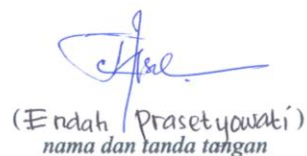 (Endah Prasetyowati)
nama dan tanda tangan